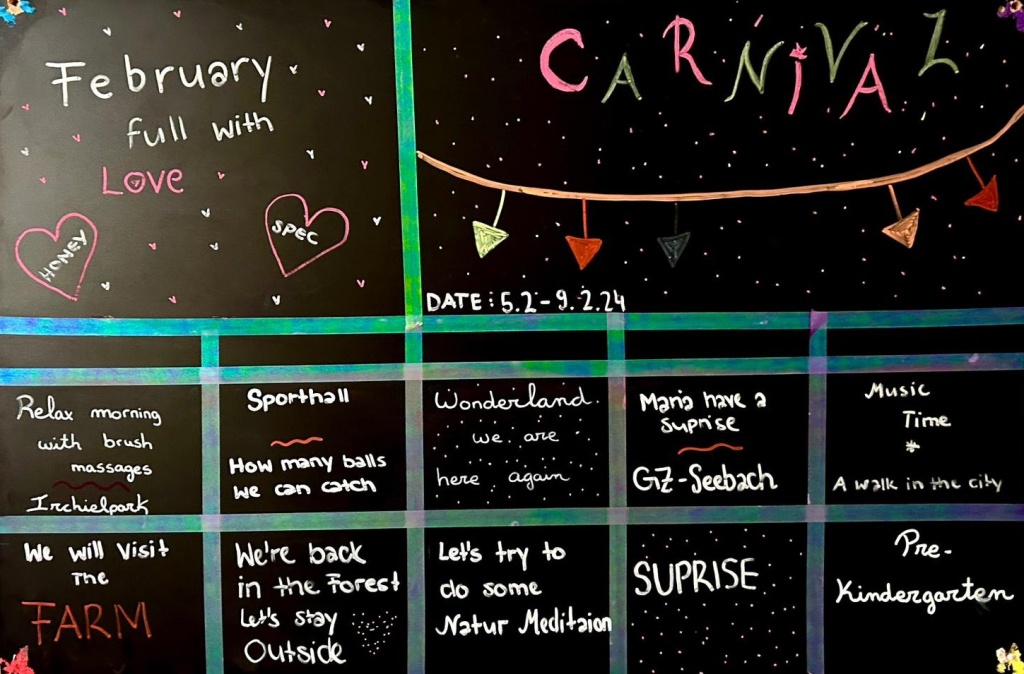 February
full with
LOVE
HONEY
SPEC
CARNiVAL
DATE: 5.2 - 9.2.24
Relax morning
with brush
massages
Irchielpark
Sporthall
How many balls
we can catch
Wonderland.
we are
here again
Maria have a
suprise
GZ-Seebach
Music
Time
*
A walk in the city
We will Visit
The
FARM
We're back
in the Forest
Let's stay
Outside
Let's try to
do some
Natur Meditaion
SUPRISE
Pre-
Kindergarten